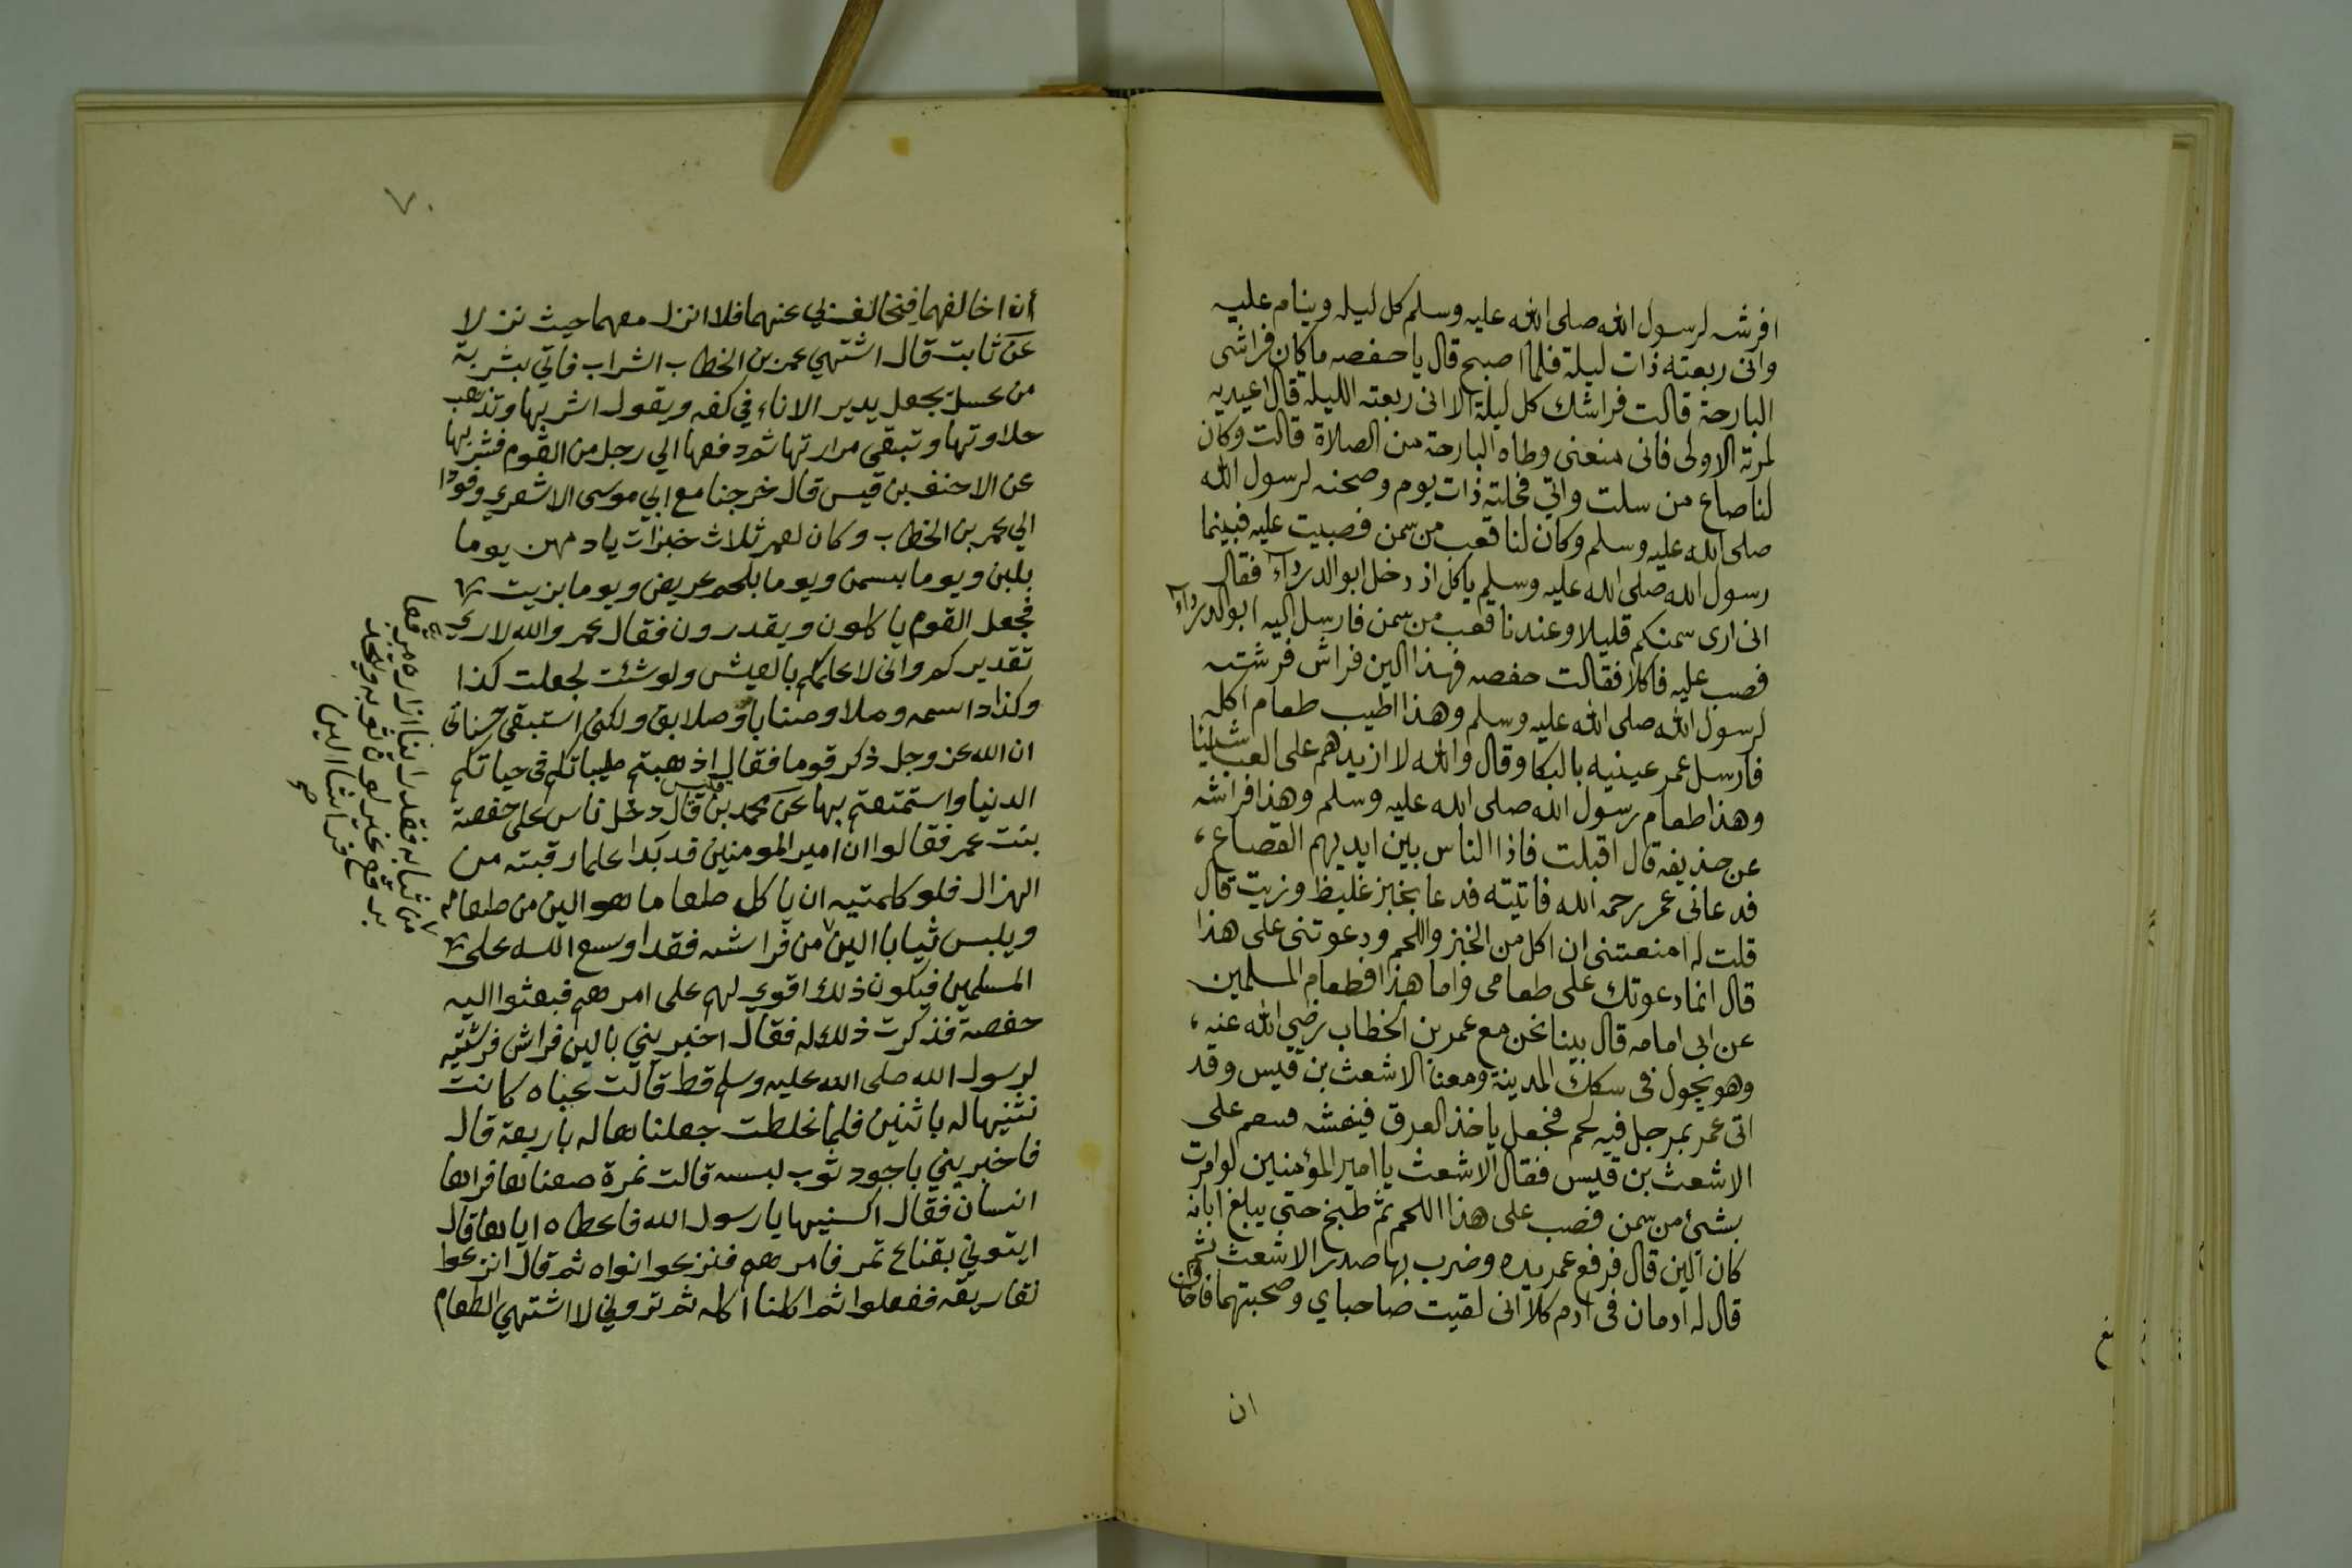 افرشه لرسول الله صلى الله عليه وسلم كل ليله وينام عليه
وانى ربعته ذات ليلة فلما اصبح قال يا حفصه ما كان فراشى
البارحة قالت فراشك كل ليلة الا انى ربعته الليلة قال اعيديه
لمرته الاولى فانى منعنى وطاه البارحة من الصلاة قالت وكان
لنا صاع من سلت واني نخلته ذات يوم وصحنه لرسول الله
صلى الله عليه وسلم وكان لنا قعب من سمن فصبيت عليه فبينما
رسول الله صلى الله عليه وسلم ياكل اذ دخل ابو الدرداء فقال
انى ارى سمنكم قليلا وعندنا قعب من سمن فارسل اليه ابو الدرداء
فصب عليه فاكلا فقالت حفصه فهذا الين فراش فرشته
لرسول الله صلى الله عليه وسلم وهذا اطيب طعام اكله
فارسل عمر عينيه بالبكا وقال والله لا ازيدهم على العب شيئا
وهذا طعام رسول الله صلى الله عليه وسلم وهذا فراشه
عن حذيفه قال اقبلت فاذا الناس بين ايديهم القصاع،
فدعانى عمر رحمه الله فاتيته فدعا بخبز غليظ وزيت قال
قلت له امنعتنى ان اكل من الخبز واللحم ودعوتنى على هذا
قال انما دعوتك على طعامى واما هذا فطعام المسلمين
عن ابى امامه قال بينا نحن مع عمر بن الخطاب رضي الله عنه،
وهو يجول فى سكك المدينة ومعنا الاشعث بن قيس وقد
اتى عمر بمرجل فيه لحم فجعل ياخذ العرق فينهشه على
الاشعث بن قيس فقال الاشعث يا امير المؤمنين لو امرت
بشئ من سمن فصب على هذا اللحم ثم طبخ حتى يبلغ ابانه
كان الين قال فرفع عمر يده وضرب بها صدر الاشعث ثم
قال له ادمان فى ادم كلا انى لقيت صاحباي وصحبتهما فاخاف
ان
٧٠
أن اخالفهما فيخالف بي عنهما فلا انزل معهما حيث نزلا
عن ثابت قال اشتهي عمر بن الخطاب الشراب فاتي بشربة
من عسل فجعل يدير الاناء في كفه ويقول اشربها وتذهب
حلاوتها وتبقى مرارتها ثم دفعها الي رجل من القوم فشربها
عن الاحنف بن قيس قال خرجنا مع ابي موسى الاشعري وفودا
الي عمر بن الخطاب وكان لعمر ثلاث خبزات يادمهن يوما
بلبن ويوما بسمن ويوما بلحم عريض ويوما بزيت
فجعل القوم ياكلون ويقدرون فقال عمر والله لاري
تقديركم وانى لاعلمكم بالعيش ولو شئت لجعلت كذا
وكذا داسمه وصلا وصنابا وصلايق ولكني استبقى حسناتى
ان الله عز وجل ذكر قوما فقال اذهبتم طيباتكم في حياتكم
الدنيا واستمتعتم بها عن محمد بن قيس قال دخل ناس على حفصة
بنت عمر فقالوا ان امير المومنين قد بدا علما رقبته من
الهزال فلو كلمتيه ان ياكل طعاما هو الين من طعامه
ويلبس ثيابا الين من فراشه فقد اوسع الله على
المسلمين فيكون ذلك اقوي لهم على امرهم فبعثوا اليه
حفصة فذكرت ذلك له فقال اخبريني بالين فراش فرشتيه
لرسول الله صلى الله عليه وسلم قط قالت عباه كانت
نثنيها له باثنين فلما غلظت جعلناها له باربعة قال
فاخبريني باجود ثوب لبسه قالت نمرة صنعناها فراها
انسان فقال اكسنيها يا رسول الله فاعطاه اياها قال
ايتوني بقناع تمر فامرهم فنزعوا نواه ثم قال انزعوا
تفاريقه ففعلوا ثم اكلنا اكله ثم تروني لا اشتهي الطعام
من ثيابه فقد راينا ازاره مرقعا
برقع غير لون ثوبه ويتخذ
فراشا الين
صح